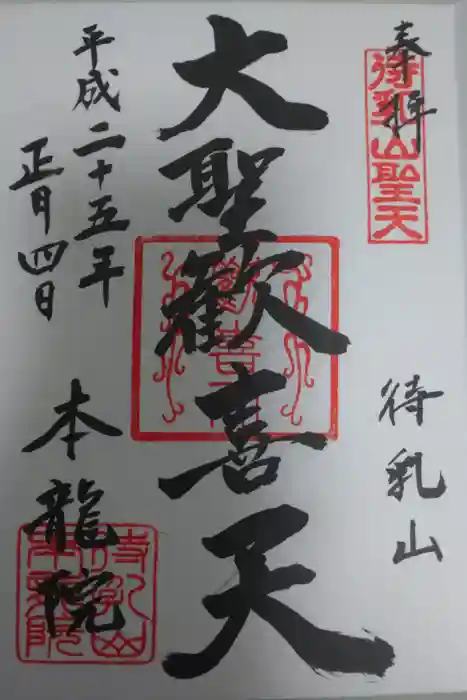 奉拝
待乳山聖天
待乳山
大聖歓喜天
歓喜天
平成二十五年
正月四日
本龍院
待乳山本龍院